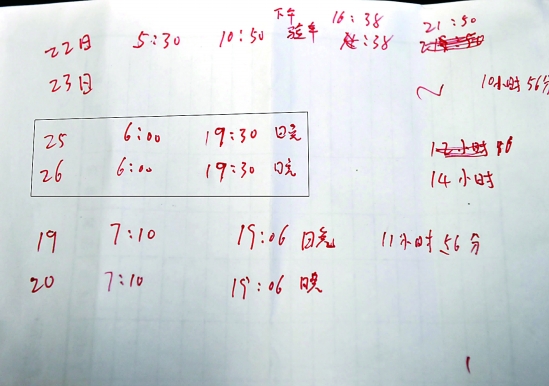 下午 16:38 21:50
22日 5:30 10:50 验车 :38
23日 10小时56分
25 6:00 19:30
26 6:00 19:30 14小时
19 7:10 19:06 11小时56分
20 7:10 19:06